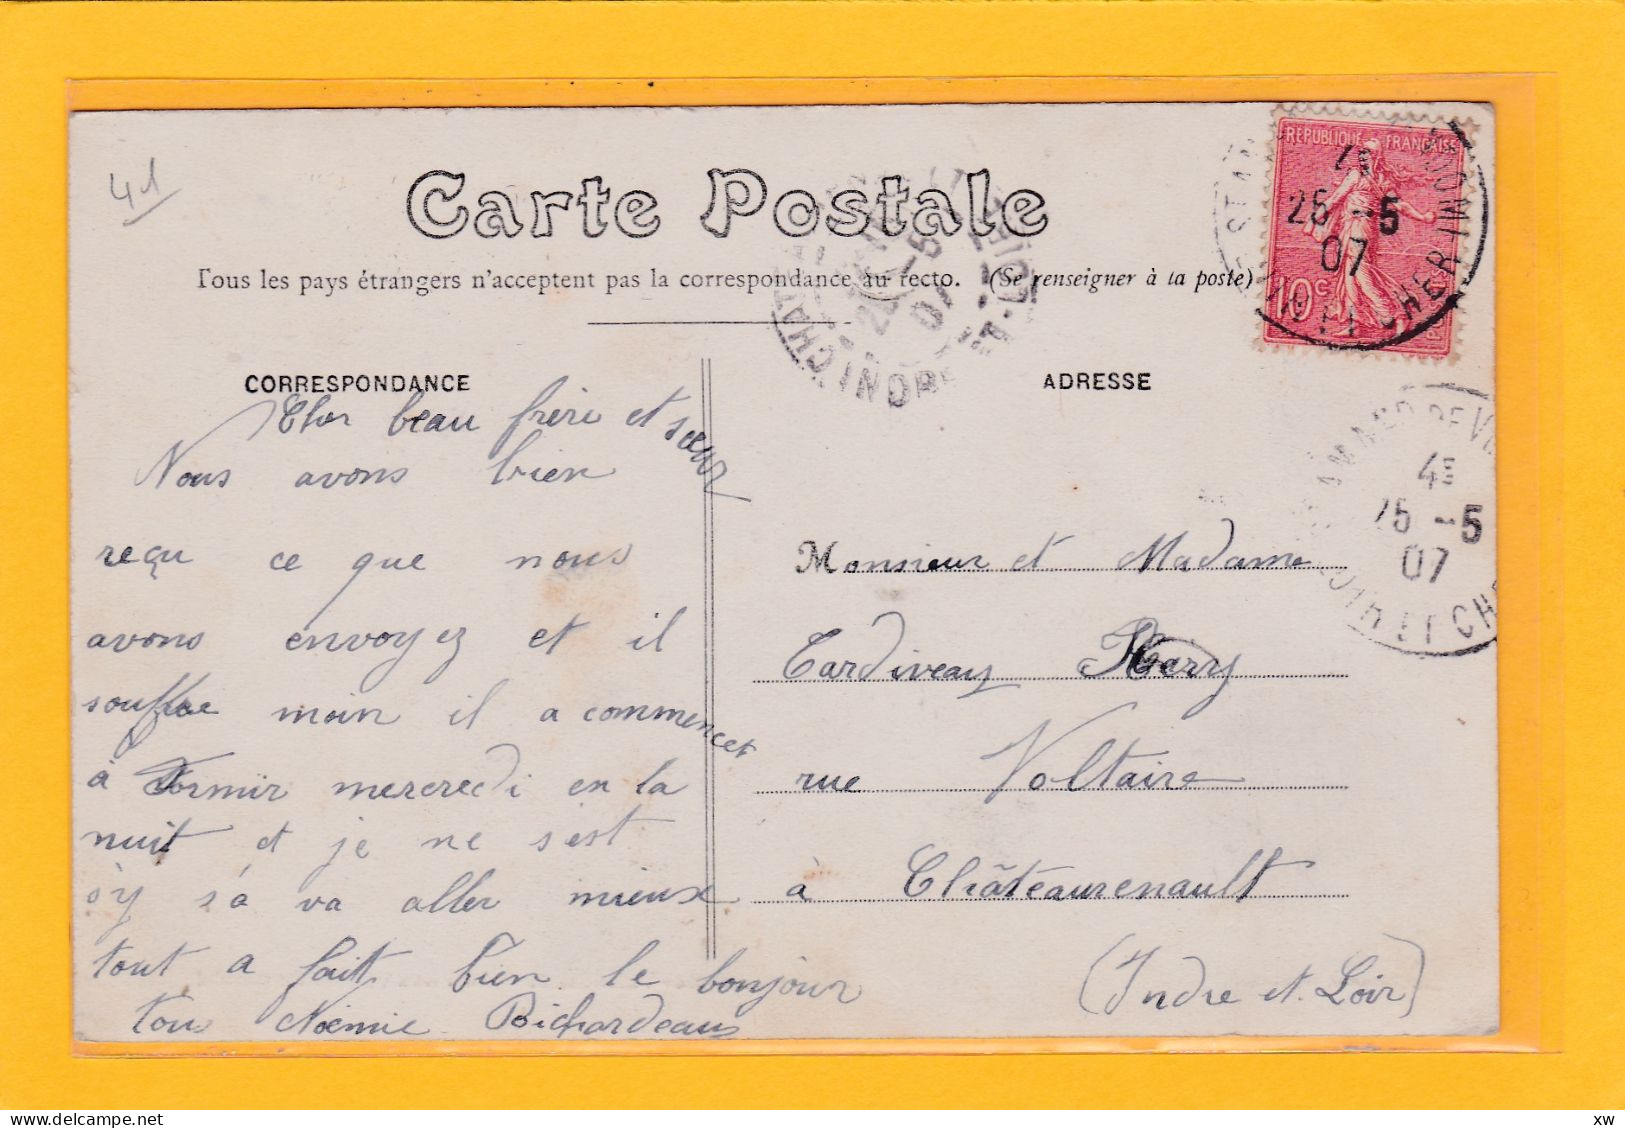 41
Carte Postale
Tous les pays étrangers n'acceptent pas la correspondance au recto. (Se renseigner à la poste)
RÉPUBLIQUE FRANÇAISE
10c
25 -5
07
INDRE ET CHER
CORRESPONDANCE
ADRESSE
Cher beau frère et sœur
Nous avons bien
reçu ce que nous
avons envoyez et il
souffre moin il a commencer
à dormir mercredi en la
nuit et je ne s'est
s'y s'a va aller mieux
tout a fait bien le bonjour
tous Noémie Bichardeaux
4E
25 -5
07
Monsieur et Madame
Tardiveau Harry
rue Voltaire
à Châteaurenault
(Indre et Loir)
xw